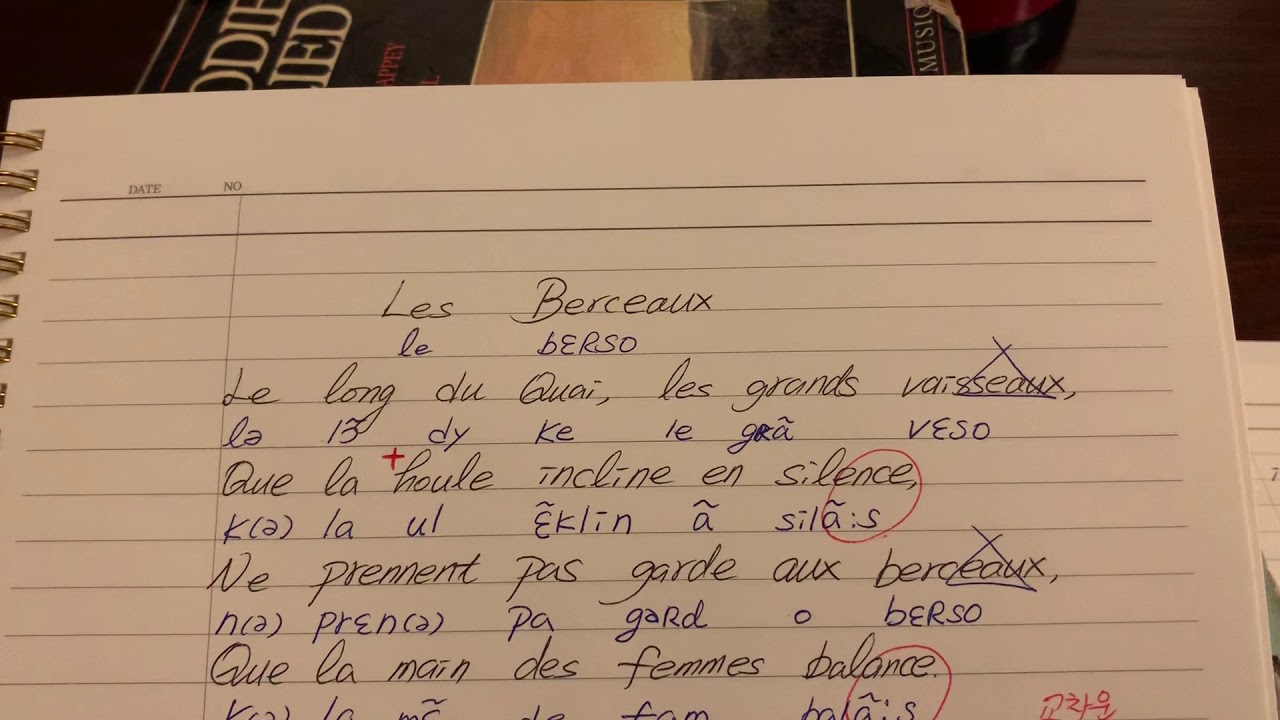 ODIE
LIED
APPEY
L
MUSIC
DATE NO
Les Berceaux
le bɛRSO
Le long du Quai, les grands vaisseaux,
lə lɔ̃ dy ke le gRɑ̃ VɛSO
Que la +houle incline en silence,
k(ə) la ul ɛ̃klin ɑ̃ silɑ̃:s
Ne prennent pas garde aux berceaux,
n(ə) prɛn(ə) pa gaRd o bɛRSO
Que la main des femmes balance.
k(ə) la mɛ̃ de fam balɑ̃:s
교차운